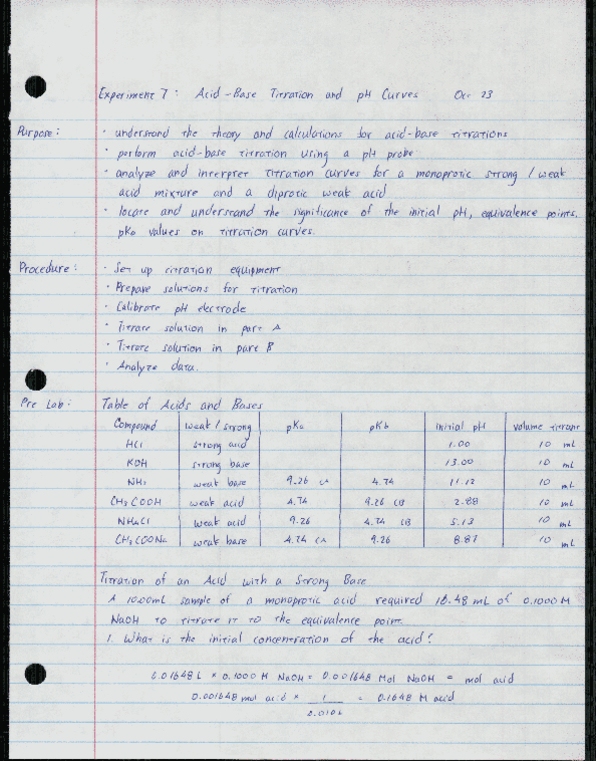 Experiment 7: Acid-Base Titration and pH Curves Oct 23
Purpose: • understand the theory and calculations for acid-base titrations
• perform acid-base titration using a pH probe
• analyze and interpret titration curves for a monoprotic strong / weak
acid mixture and a diprotic weak acid
• locate and understand the significance of the initial pH, equivalence points,
pKa values on titration curves.
Procedure: • Set up titration equipment
• Prepare solutions for titration
• Calibrate pH electrode
• Titrate solution in part A
• Titrate solution in part B
• Analyze data.
Pre Lab: Table of Acids and Bases
Compound weak/strong pKa pKb initial pH volume titrant
HCl strong acid 1.00 10 mL
KOH strong base 13.00 10 mL
NH3 weak base 9.26 CA 4.74 11.12 10 mL
CH3COOH weak acid 4.74 9.26 CB 2.88 10 mL
NH4Cl weak acid 9.26 4.74 CB 5.13 10 mL
CH3COONa weak base 4.74 CA 9.26 8.87 10 mL
Titration of an Acid with a Strong Base
A 10.00mL sample of a monoprotic acid required 16.48 mL of 0.1000 M
NaOH to titrate it to the equivalence point.
1. What is the initial concentration of the acid?
0.01648 L × 0.1000 M NaOH = 0.001648 Mol NaOH = mol acid
0.001648 mol acid × 1 = 0.1648 M acid
0.010L